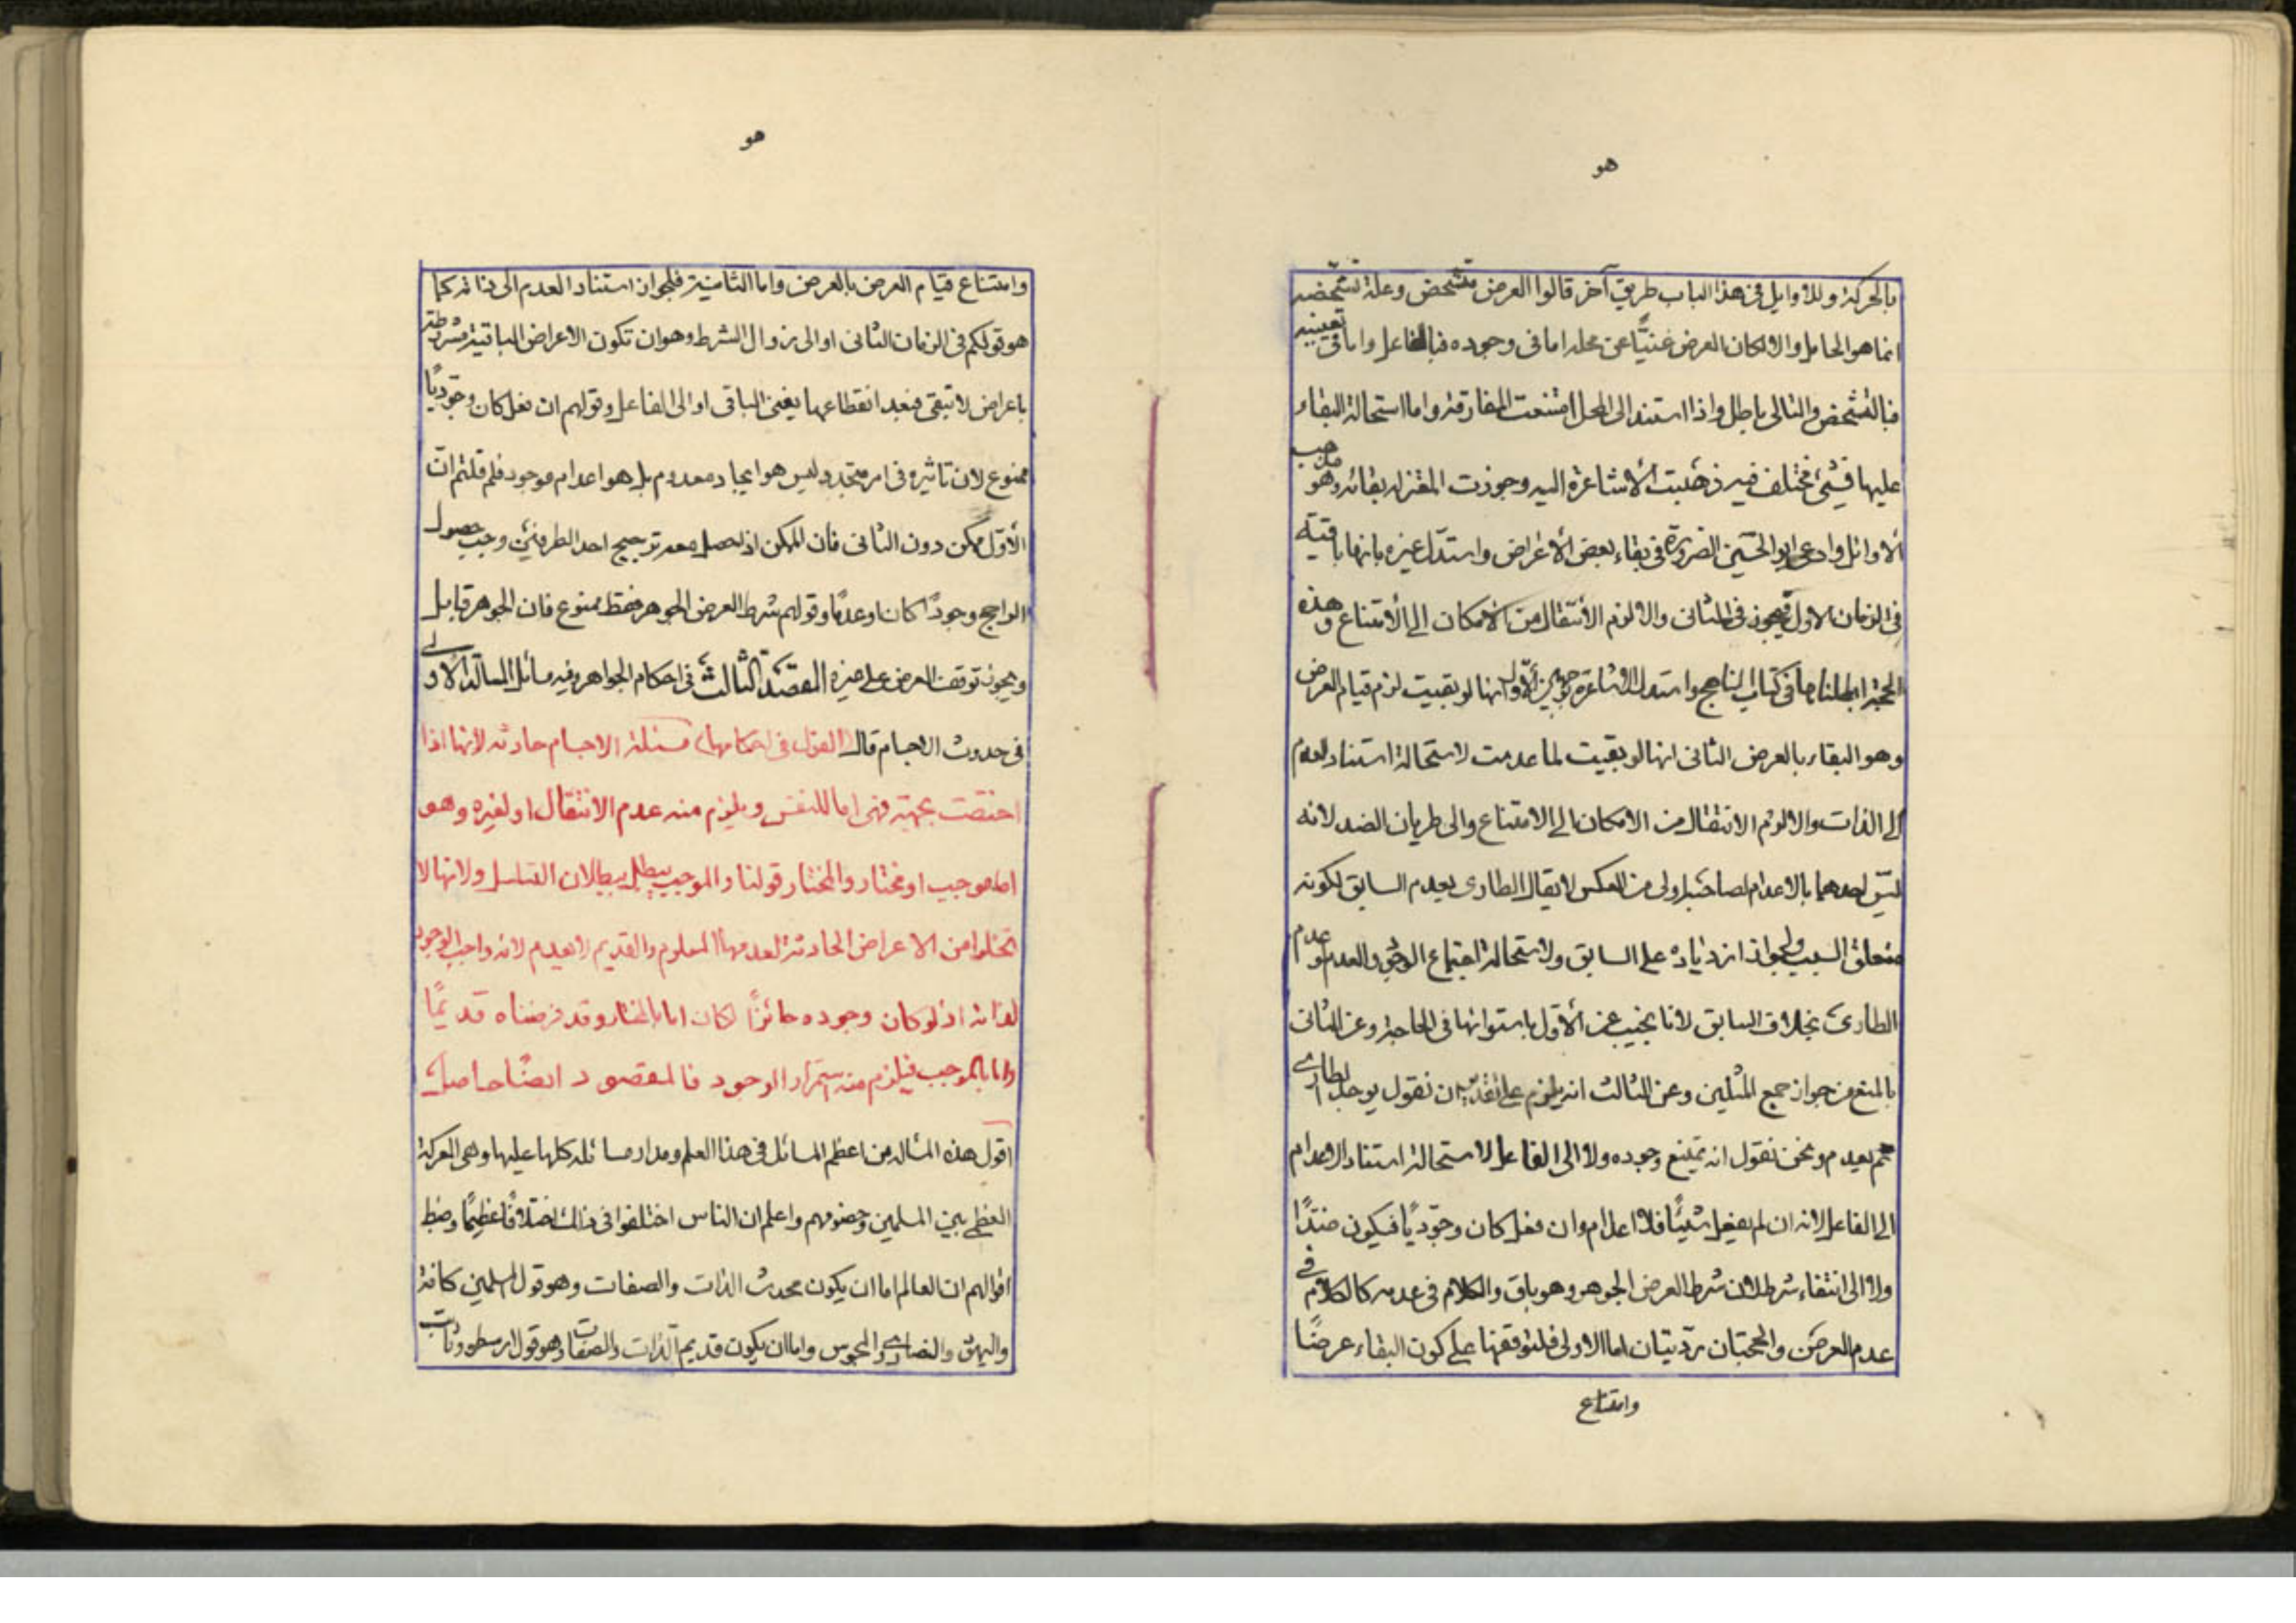 هو
بالحركة وللاوايل في هذا الباب طريق آخر قالوا العرض متشخص وعلة تشخصه
انما هو الحامل والا لكان العرض غنيًّا عن محله اما في وجوده فبالفاعل واما في تعيينه
فبالتشخص والتالي باطل واذا استند الى المحل امتنعت المفارقة واما استحالة البقاء
عليها فشئ مختلف فيه ذهبت الأشاعرة اليه وجوزت المعتزلة بقائه وهو مذهب
الأوائل وادعى ابو الحسين الضرورة في بقاء بعض الأعراض واستدل غيره بانها باقية
في الزمان الاول فيجوز في الثاني والا لزم الأنتقال من الأمكان الى الأمتناع وهذه
الحجة ابطلناها في كتاب المناهج واستدل الاشاعرة بوجهين الأول انها لو بقيت لزم قيام العرض
وهو البقاء بالعرض الثاني انها لو بقيت لما عدمت لاستحالة استناد العدم
الى الذات والا لزم الانتقال من الامكان الى الامتناع والى طريان الضد لانه
ليس احدهما بالاعدام لصاحبه اولى من العكس لا يقال الطارى يعدم السابق لكونه
متعلق السبب ولجواز ازدياده على السابق ولاستحالة اجتماع الوجود والعدم لو عدم
الطارئ بخلاف السابق لانا نجيب عن الأول باستوائها في الحاجة وعن الثاني
بالمنع من جواز جمع المثلين وعن الثالث انه يلزم على تقدير ان نقول يوجد الطارى
ثم يعدم ونحن نقول انه يمتنع وجوده ولا الى الفاعل لاستحالة استناد الاعدام
الى الفاعل لانه ان لم يفعل شيئًا فلا اعدام وان فعل كان وجوديًا فيكون ضدًا
ولا الى انتفاء شرط لان شرط العرض الجوهر وهو باق والكلام في عدمه كالكلام في
عدم العرض والحجتان رديتان اما الاولى فلتوقفها على كون البقاء عرضًا
وامتناع
هو
وامتناع قيام العرض بالعرض واما الثانية فلجواز استناد العدم الى ذاته كما
هو قولكم في الزمان الثاني او الى زوال الشرط وهو ان تكون الاعراض الباقية مشروطة
باعراض لا تبقى فبعد انقطاعها يفنى الباقي او الى الفاعل وقولهم ان فعل كان وجوديًا
ممنوع لان تاثيره في امر متجدد ليس هو ايجاد معدوم بل هو اعدام موجود فلم قلتم ان
الأول ممكن دون الثاني فان الممكن اذا حصل معه ترجيح احد الطرفين وجب حصول
الراجح وجودًا كان او عدمًا وقولهم شرط العرض الجوهر فقط ممنوع فان الجوهر قابل
ويجوز توقف العرض على غيره المقصد الثالث في احكام الجواهر وفيه مسائل المسالة الاولى
في حدوث الاجسام قال القول في احكامها مسئلة الاجسام حادثه لانها اذا
اختصت بجهة فهى اما للنفس ويلزم منه عدم الانتقال او لغيره وهو
اما موجب او مختار والمختار قولنا والموجب يبطل ببطلان التسلسل ولانها لا
تخلوا من الاعراض الحادثة لعدمها المعلوم والقديم لا يعدم لانه واجب الوجود
لذاته اذ لو كان وجوده جائزًا لكان اما بالمختار وقد فرضناه قديمًا
واما بالموجب فيلزم منه استمرار الوجود فالمقصود ايضًا حاصل
اقول هذه المسالة من اعظم المسائل في هذا العلم ومدار مسائله كلها عليها وهي المعركة
العظمى بين المسلمين وخصومهم واعلم ان الناس اختلفوا في ذلك اختلافًا عظيمًا وضبط
اقوالهم ان العالم اما ان يكون محدث الذات والصفات وهو قول المسلمين كافة
واليهود والنصارى والمجوس واما ان يكون قديم الذات والصفات وهو قول ارسطو وثابت